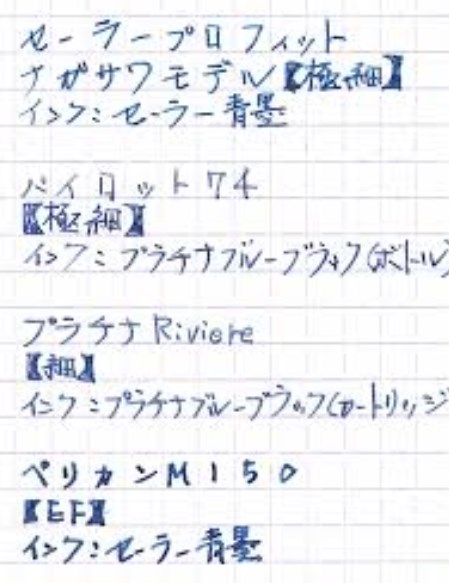 セーラープロフィット
ナガサワモデル【極細】
インク:セーラー青墨
パイロット74
【極細】
インク:プラチナブルーブラック(ボトル)
プラチナRiviere
【細】
インク:プラチナブルーブラック(カートリッジ
ペリカンM150
【EF】
インク:セーラー青墨